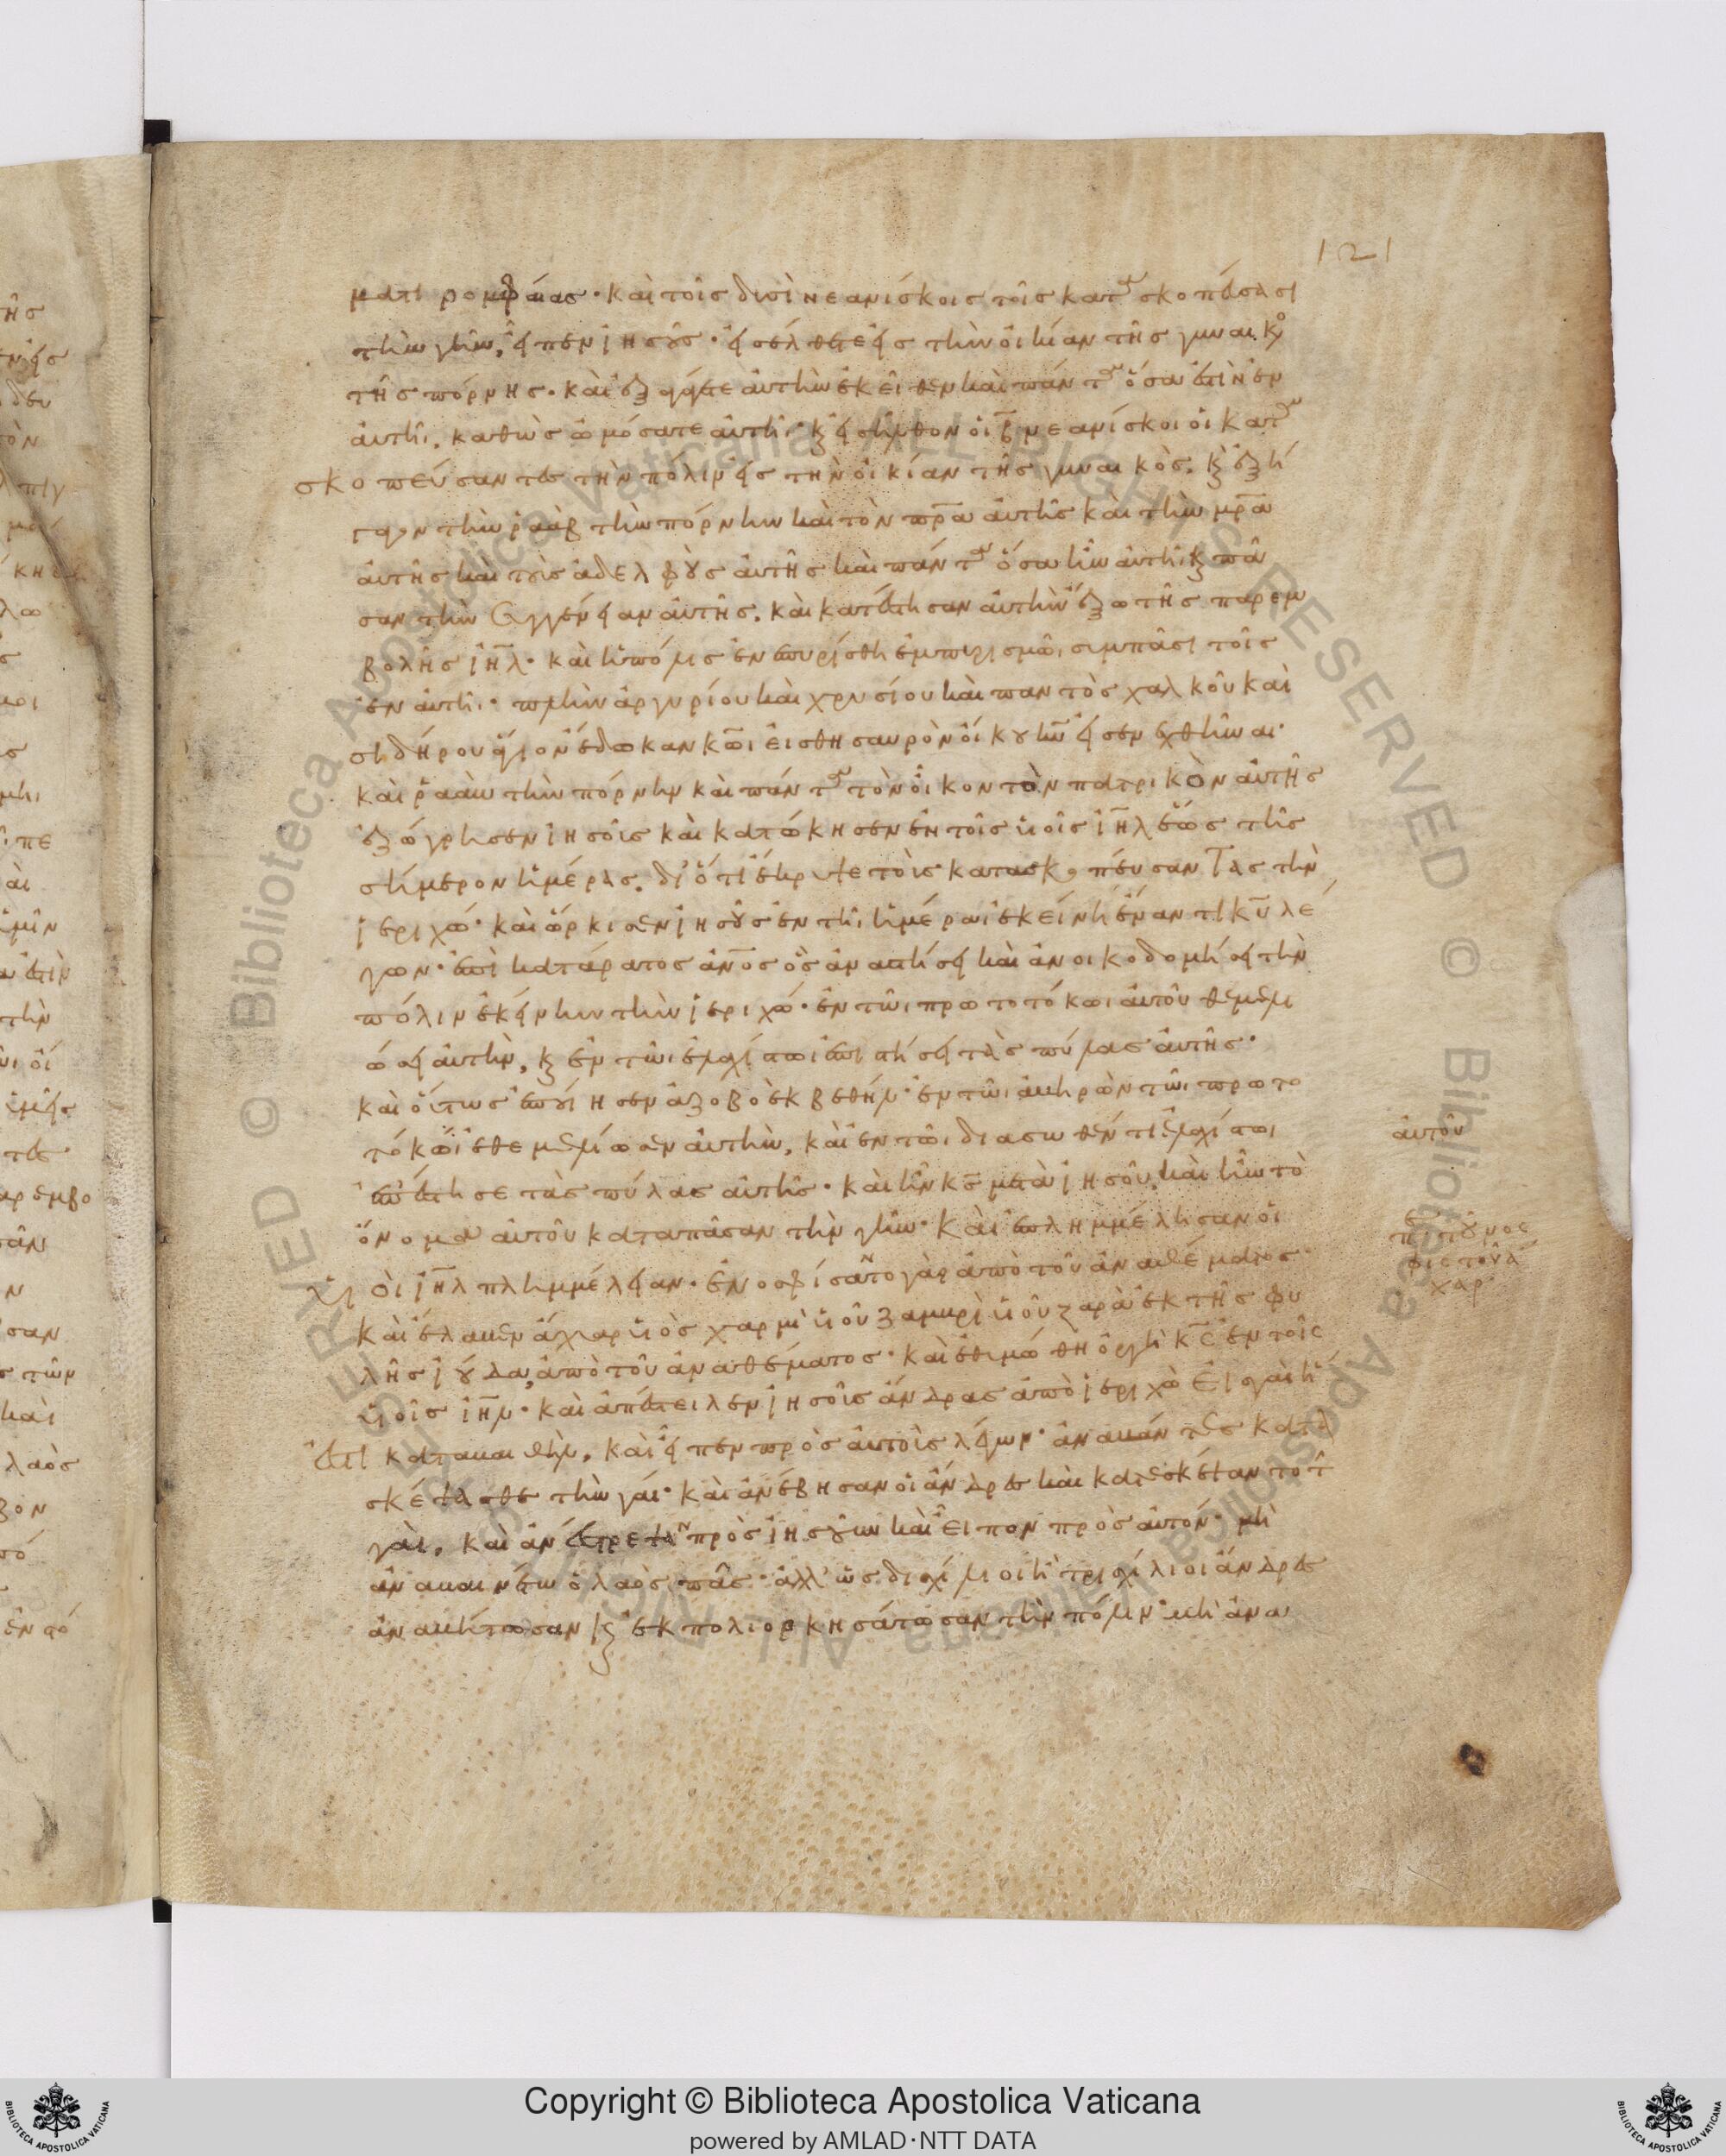 121
ματι ρομφαίας· καὶ τοῖς δυσὶ νεανίσκοις τοῖς κατα σκοπεύσασι
τὴν γῆν, εἶπεν ἰησοῦς· εἰσέλθατε εἰς τὴν οἰκίαν τῆς γυναικὸ
τῆς πόρνης· καὶ ἐξαγάγετε αὐτὴν ἐκεῖθεν καὶ πάντα ὅσα ἐστὶν ἐν
αὐτῆι, καθὼς ὠμόσατε αὐτῆι· κ εἰσῆλθον οἱ β̅ νεανίσκοι οἱ κατα
σκοπεύσαντες τὴν πόλιν εἰς τὴν οἰκίαν τῆς γυναικὸς, κ ἐξή
γαγον τὴν ῥαὰβ τὴν πόρνην καὶ τὸν πρ̅α αὐτῆς καὶ τὴν μρ̅α
αὐτῆς καὶ τοὺς ἀδελφοὺς αὐτῆς καὶ πάντα ὅσα ἦν αὐτῆι κ πᾶ
σαν τὴν συγγένειαν αὐτῆς, καὶ κατέστησαν αὐτὴν ἔξω τῆς παρεμ
βολῆς ι̅η̅λ· καὶ ἡ πόλις ἐνεπυρίσθη ἐμπυρισμῶι σὺμ πᾶσι τοῖς
ἐν αὐτῆι· πλὴν ἀργυρίου καὶ χρυσίου καὶ παντὸς χαλκοῦ καὶ
σιδήρου
καὶ ῥαὰβ τὴν πόρνην καὶ πάντα τὸν οἶκον τὸν πατρικὸν αὐτῆς
ἐζώγρησεν ἰησοῦς καὶ κατώκησεν ἐν τοῖς υἱοῖς ι̅η̅λ ἕως τῆς
σήμερον ἡμέρας, διότι ἔκρυψε τοὺς κατασκοπεύσαντας τὴν
ἱεριχώ· καὶ ὥρκισεν ἰησοῦς ἐν τῆι ἡμέραι ἐκείνη ἐναντι κ̅υ λέ
γων· ἐπὶ κατάρατος ἄν̅ος ὃς ἀναστήσει καὶ ἀνοικοδομήσει τὴν
πόλιν ἐκείνην τὴν ἱεριχώ· ἐν τῶι πρωτοτόκωι αὐτοῦ θεμελι
ώσει αὐτὴν, κ ἐν τῶι ἐλαχίστωι ἐπιστήσει τὰς πύλας αὐτῆς·
καὶ οὕτως ἐποίησεν ἀζοβὸ ἐκ βεθήλ· ἐν τῶι ἀβηρὼν τῶι πρωτο
τόκωι ἐθεμελίωσεν αὐτὴν, καὶ ἐν τῶι διασωθέντι ἐλαχίστωι
αὐτοῦ
ἐπέστησε τὰς πύλας αὐτῆς· καὶ ἦν κ̅ς μετὰ ἰησοῦ, καὶ ἦν τὸ
ὄνομα αὐτοῦ κατα πᾶσαν τὴν γῆν· καὶ ἐπλημμέλησαν οἱ
υἱ οἱ ι̅η̅λ πλημμέλειαν· ἐνοσφίσαντο γὰρ ἀπὸ τοῦ ἀναθέματος
καὶ ἔλαβεν ἄχαρ υἱὸς χαρμὶ υἱοῦ ζαμβρὶ υἱοῦ ζαρὰ ἐκ τῆς φυ
λῆς ἰούδα, ἀπὸ τοῦ ἀναθέματος· καὶ ἐθυμώθη ὀργῆ κ̅ς ἐν τοῖς
υἱοῖς ι̅η̅λ· καὶ ἀπέστειλεν ἰησοῦς ἄνδρας ἀπὸ ἱεριχὼ εἰς γαὶ ἥ
ἐστι κατα βαιθὴλ, καὶ εἶπεν πρὸς αὐτοὺς λέγων· ἀναβάντες κατα
σκέψασθε τὴν γαί· καὶ ἀνέβησαν οἱ ἄνδρες καὶ κατεσκέψαντο τὴ
γαὶ, καὶ ἀνέστρεψαν πρὸς ἰησοῦν καὶ εἶπον πρὸς αὐτόν· μὴ
ἀναβαινέτω ὁ λαὸς πᾶς· ἀλλ' ὡς δισχίλιοι ἢ τρισχίλιοι ἄνδρες
ἀναβήτωσαν κ ἐκπολιορκησάτωσαν τὴν πόλιν· μὴ ἀνα
Copyright © Biblioteca Apostolica Vaticana
powered by AMLAD·NTT DATA